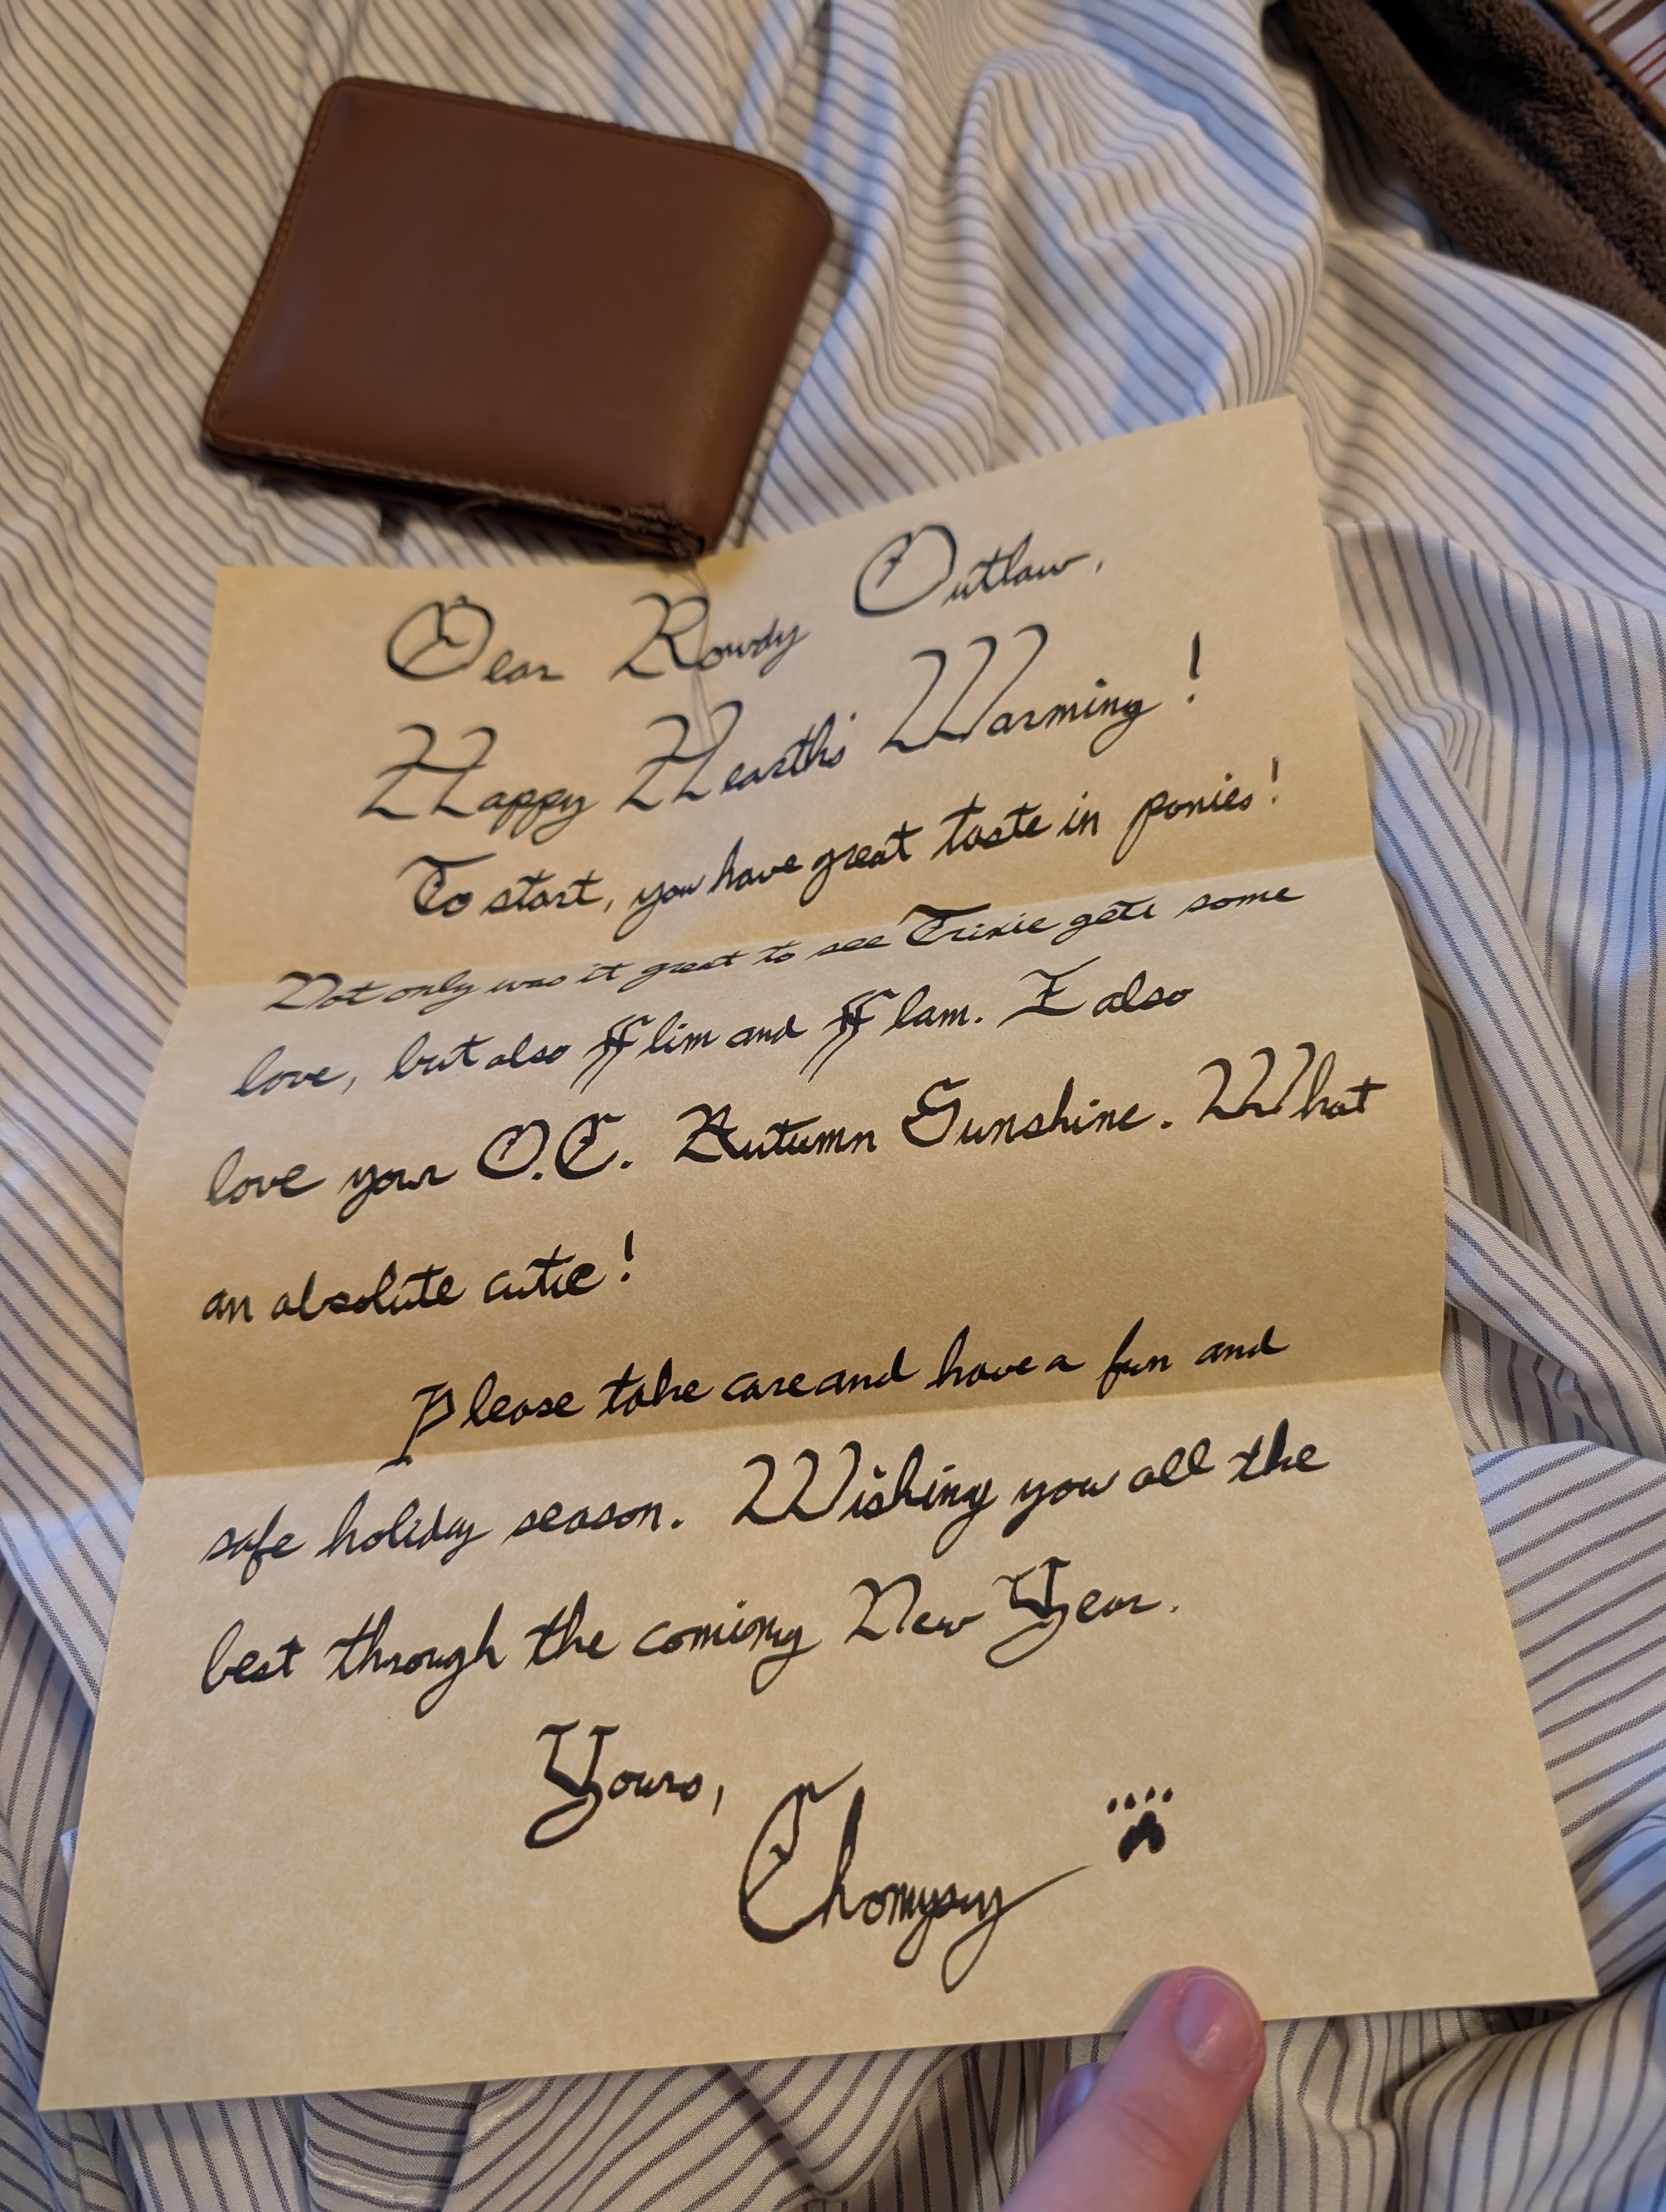 Dear Rowdy Outlaw,
Happy Hearth's Warming!
To start, you have great taste in ponies!
Not only was it great to see Trixie gets some
love, but also Flim and Flam. I also
love your O.C. Autumn Sunshine. What
an absolute cutie!
Please take care and have a fun and
safe holiday season. Wishing you all the
best through the coming New Year.
Yours,